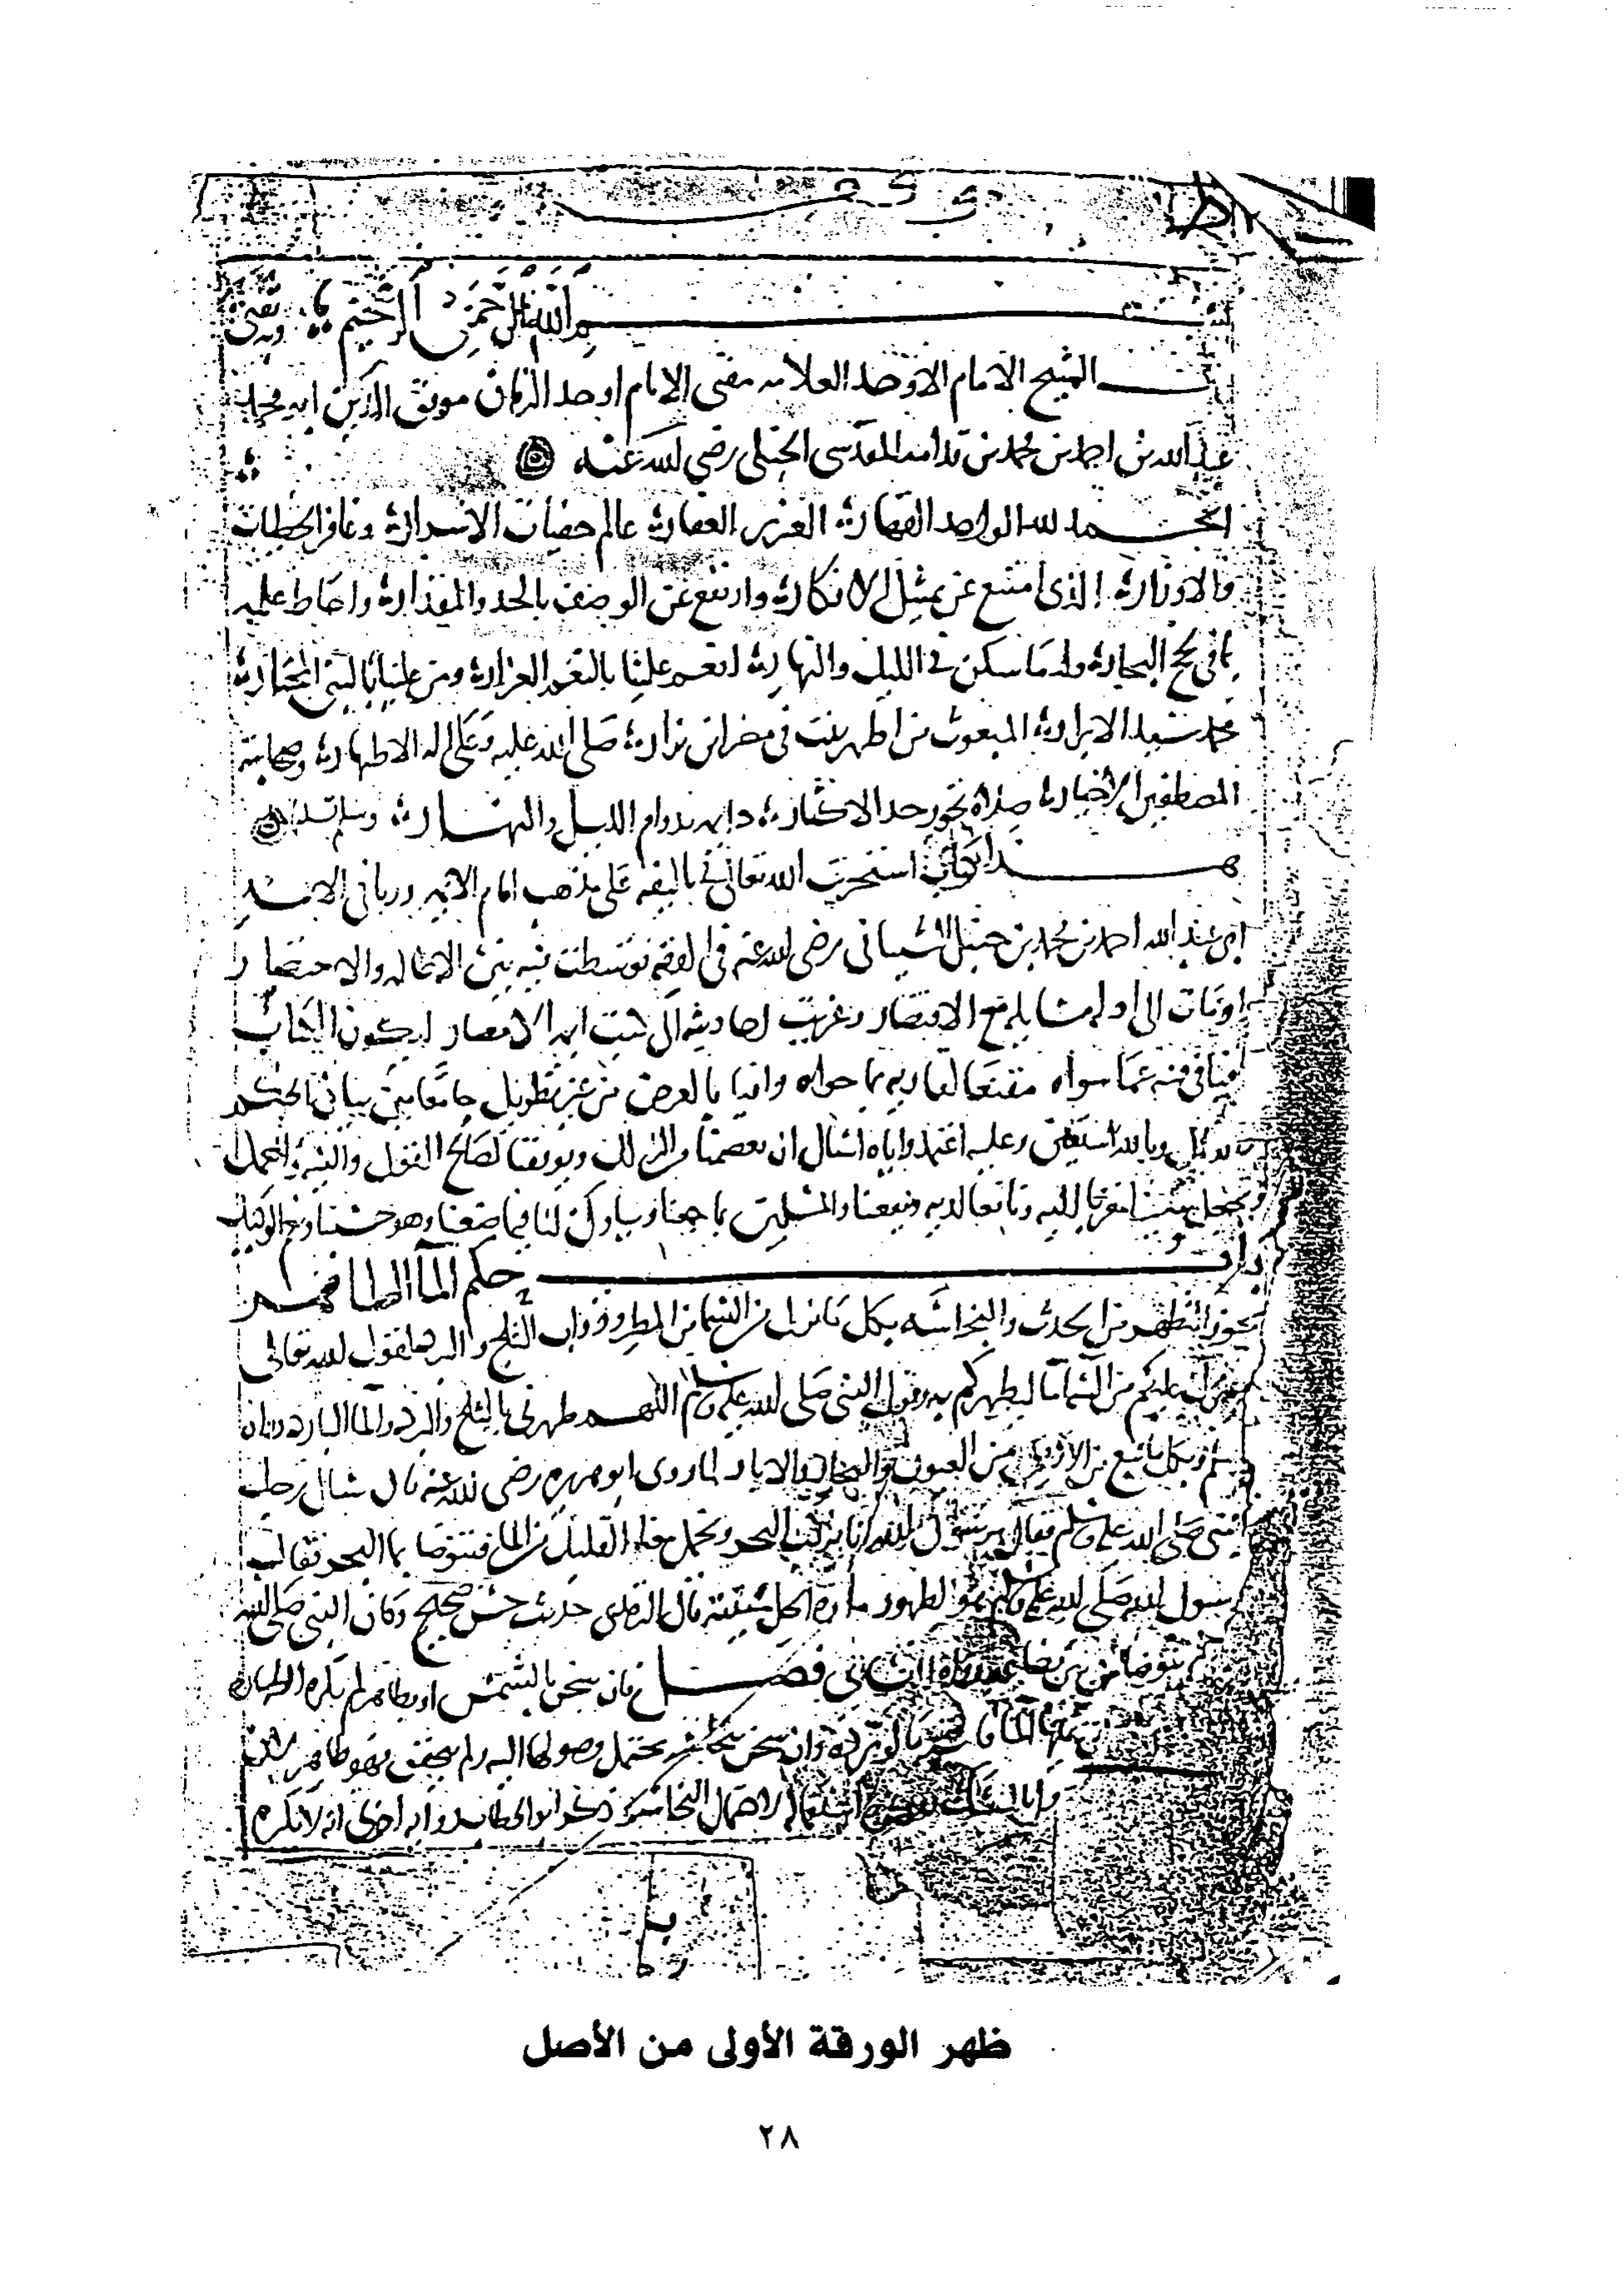 وقف
بسم الله الرحمن الرحيم وبه ثقتي
الشيخ الامام الاوحد العلامه مفتي الانام اوحد الزمان موفق الدين ابو محمد
عبد الله بن احمد بن محمد بن قدامه المقدسي الحنبلي رضي الله عنه
الحمد لله الواحد القهار العزيز الغفار عالم خفيات الاسرار وغافر الخطيات
والاوزار الذي امتنع عن تمثيل الافكار وارتفع عن الوصف بالحد والمقدار واحاط علمه
بما في لجج البحار وله ما سكن في الليل والنهار انعم علينا بالنعم الغزار ومن علينا بالنبي المختار
محمد سيد الابرار المبعوث من اطهر بيت في مضر ابن نزار صلى الله عليه وعلى اله الاطهار وصحابته
المصطفين الاخيار صلاة تجوز حد الاكثار دايمه بدوام الليل والنهار وسلم
هذا كتاب استخرت الله تعالى في تاليفه على مذهب امام الايمه ورباني الامه
ابي عبد الله احمد بن محمد بن حنبل الشيباني رضي الله عنه في الفقه توسطت فيه بين الاطاله والاختصار
واومات الى ادلة مسايله مع الاقتصار وعزيت احاديثه الى كتب ايمة الامصار ليكون الكتاب
كافيا في فنه عما سواه مقنعا لقاريه بما حواه وافيا بالغرض من غير تطويل جامعا بين بيان الحكم
والدليل وبالله استعين وعليه اعتمد واياه اسال ان يعصمنا من الزلل ويوفقنا لصالح القول والنيه والعمل
ويجعل سعينا مقربا اليه ونافعا لديه وينفعنا والمسلمين بما جمعنا ويبارك لنا فيما صنعنا وهو حسبنا ونعم الوكيل
باب حكم الما الطاهر
يجوز التطهر من الحدث والنجاسه بكل ما نزل من السما من المطر وذوب الثلج والبرد لقول الله تعالى
وينزل عليكم من السما ما ليطهركم به وقول النبي صلى الله عليه وسلم اللهم طهرني بالثلج والبرد والما البارد رواه
مسلم وبكل ما نبع من الارض من العيون والبحار والابار لما روى ابو هريره رضي الله عنه قال سال رجل
النبي صلى الله عليه وسلم فقال يا رسول الله انا نركب البحر ونحمل معنا القليل من الما فنتوضا بما البحر فقال
رسول الله صلى الله عليه وسلم هو الطهور ماوه الحل ميتته قال الترمذي حديث حسن صحيح وكان النبي صلى الله
يتوضا من بير بضاعه رواه النسائي فصل فان سخن بالشمس او بطاهر لم تكره الطهاره
وان سخن بنجاسه يحتمل وصولها اليه ولم يتحقق فهو طاهر
استعماله لاحتمال النجاسه وذكر ابو الخطاب روايه اخرى انه لا يكره
ظهر الورقة الأولى من الأصل
٢٨